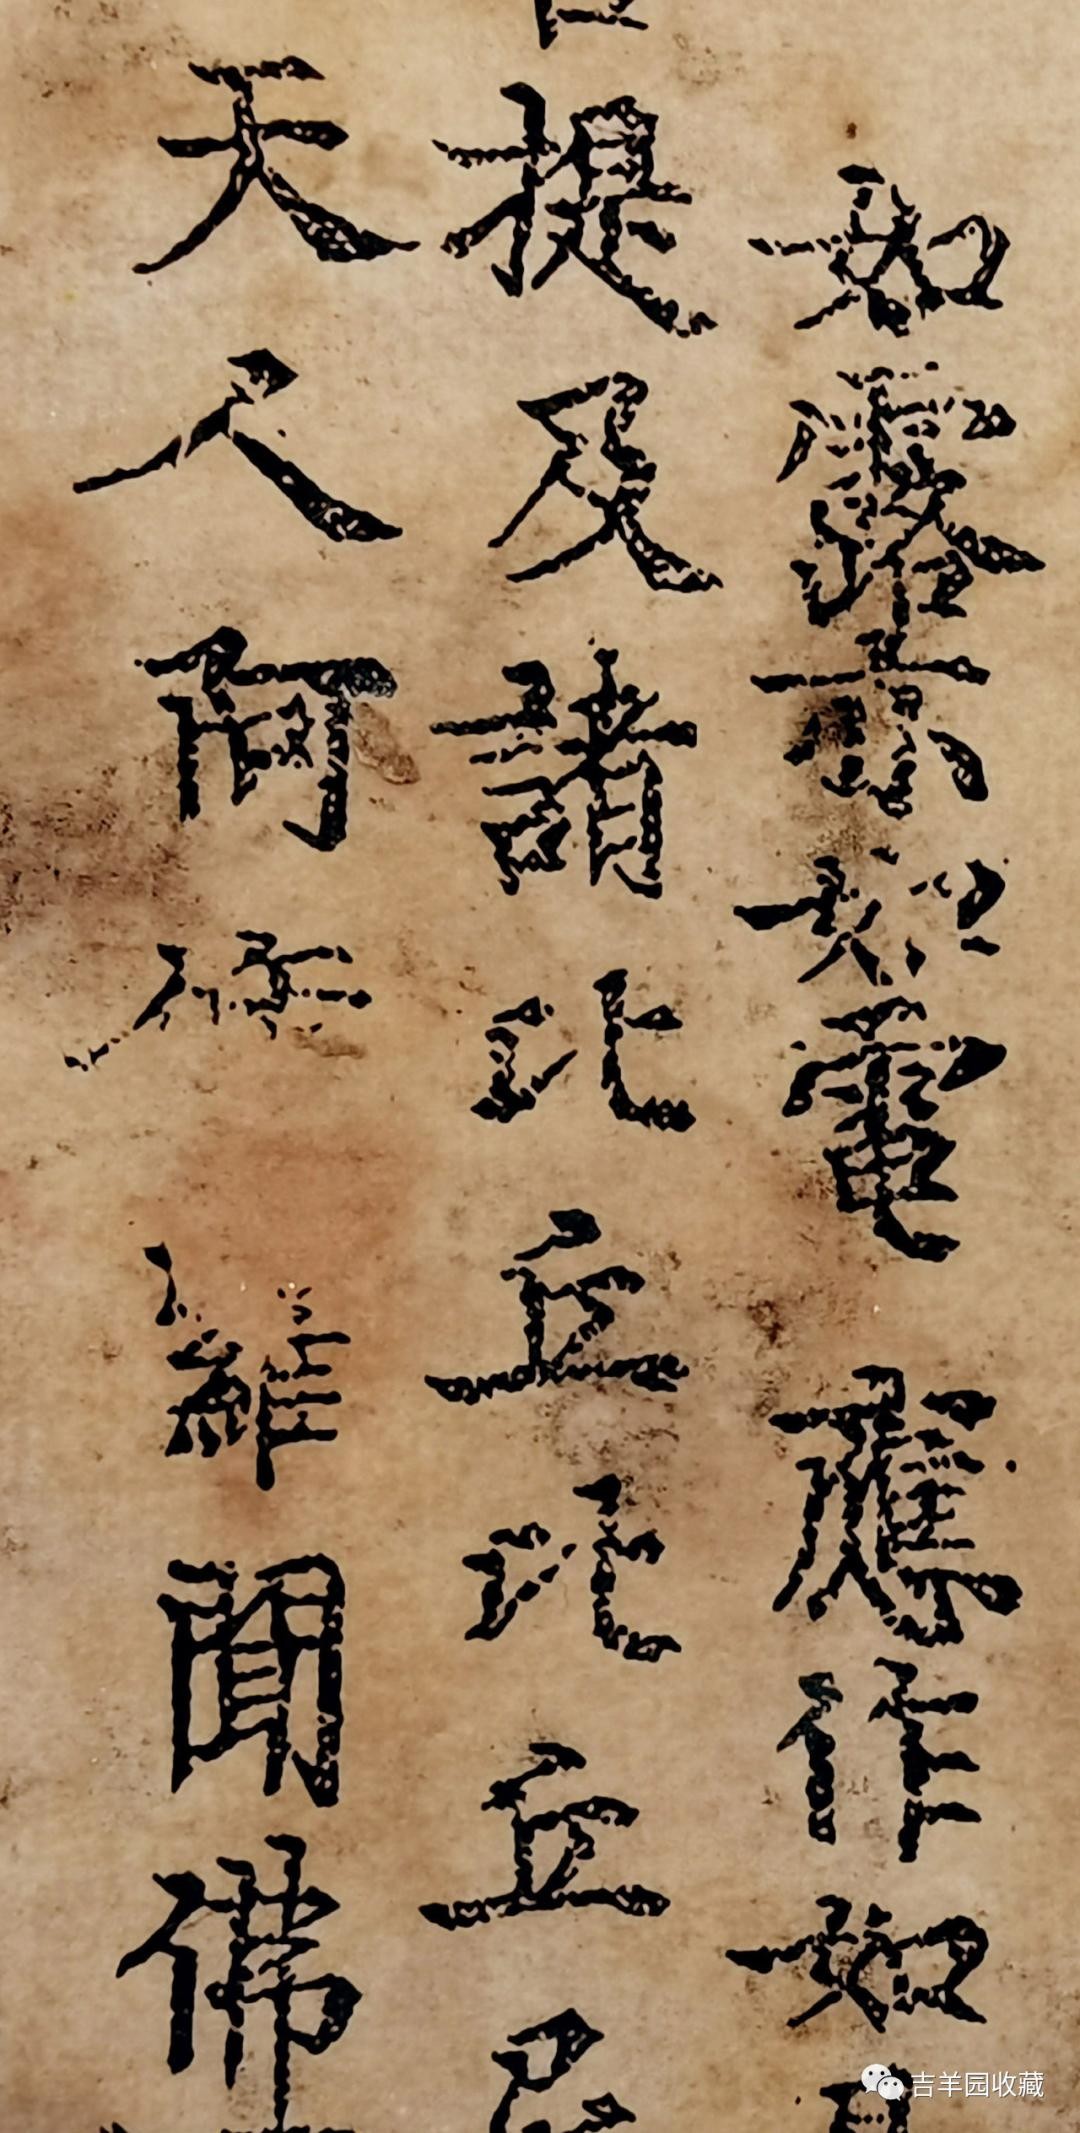 如露亦如電應作如是
提及諸比丘比丘尼
天人阿脩羅聞佛
吉羊园收藏